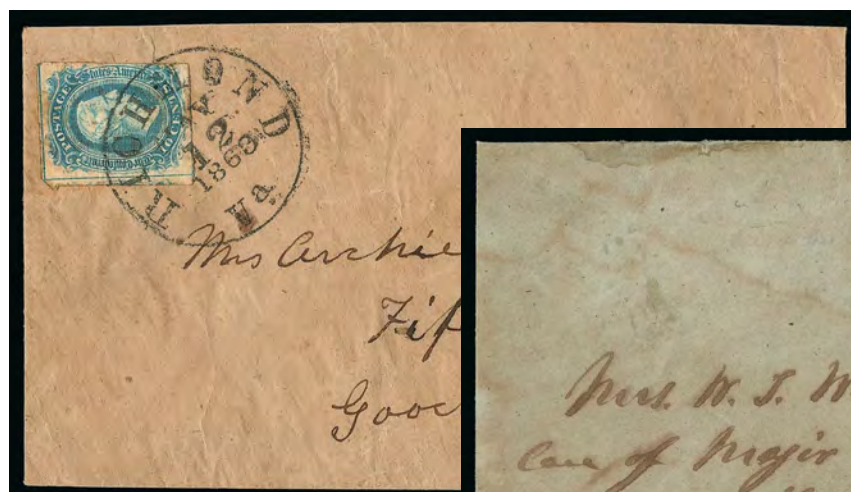 POSTAGE
RICHMOND
12
1863
Va.
Mrs Archie
Fif
Gooc
Mrs. W. T. W
Care of Major